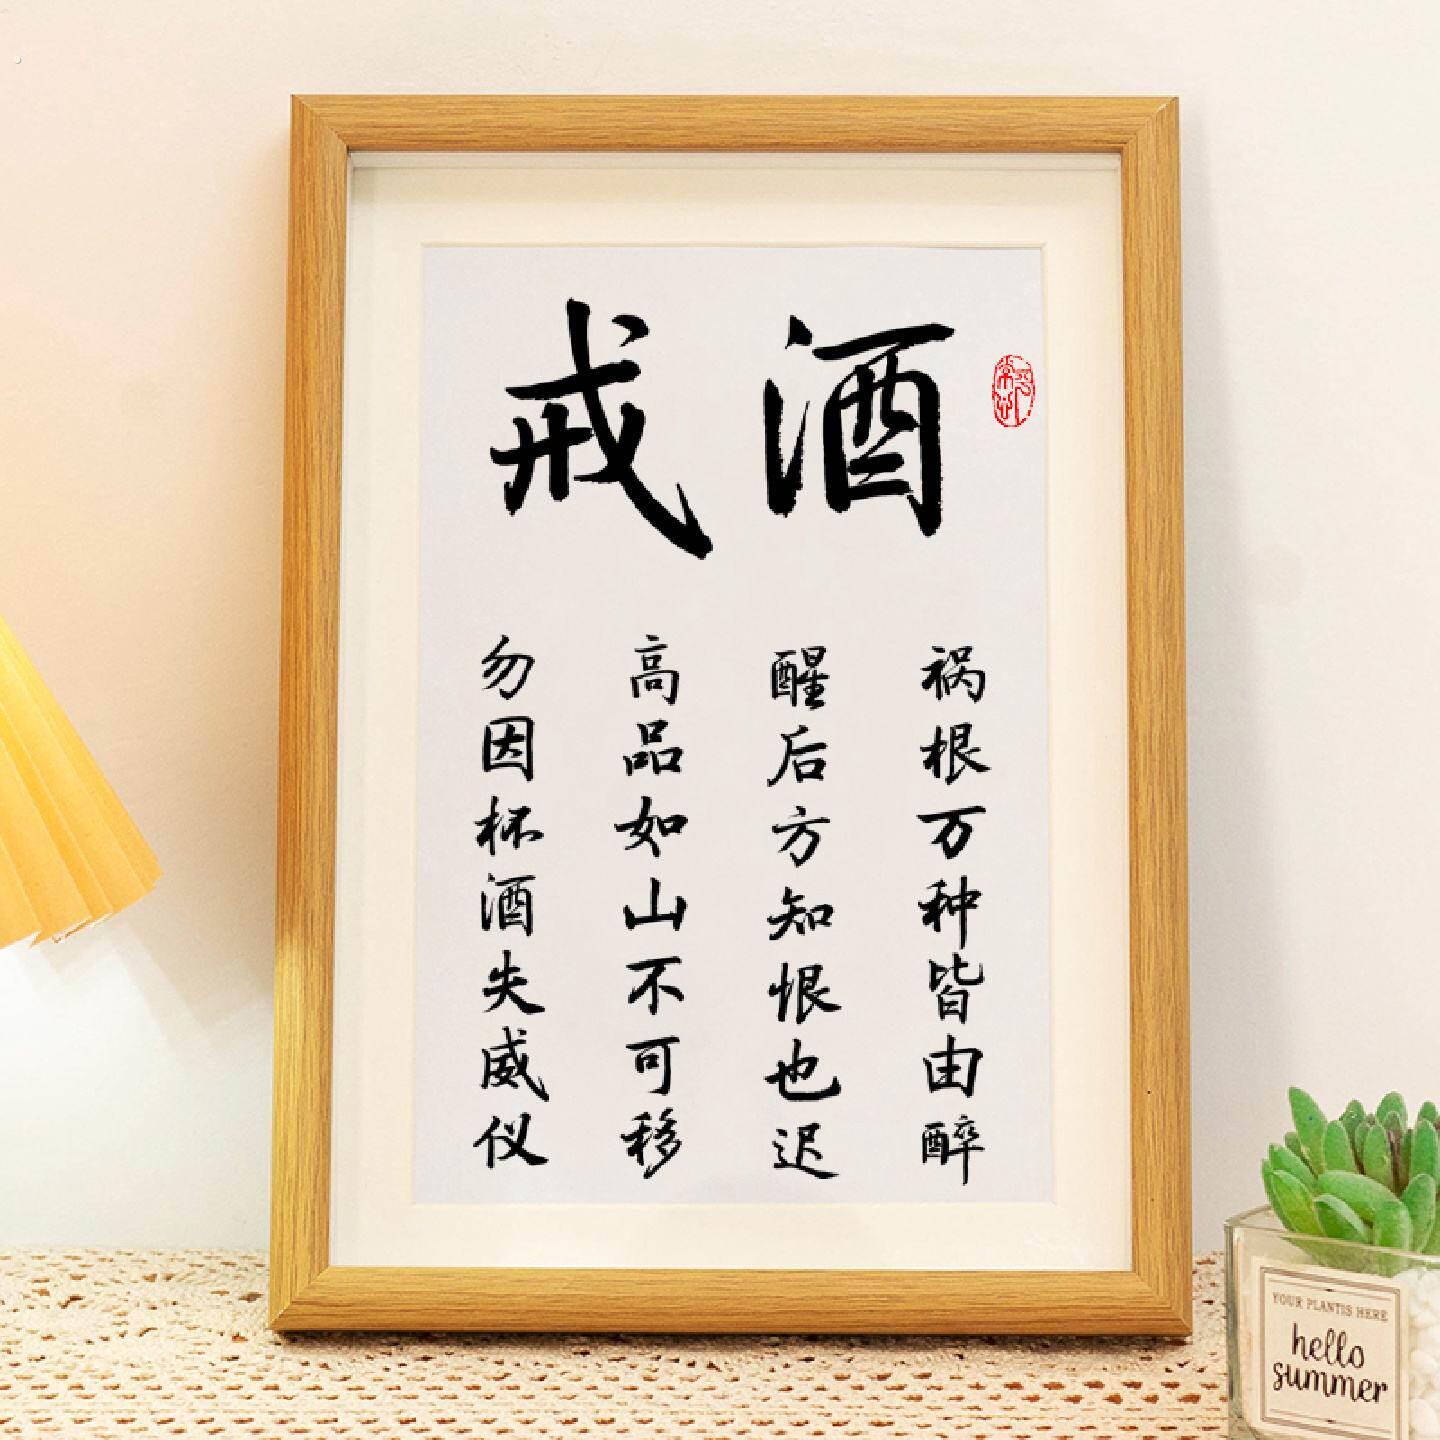 戒酒
祸根万种皆由醉
醒后方知恨也迟
高品如山不可移
勿因杯酒失威仪
YOUR PLANTIS HERE
hello
summer